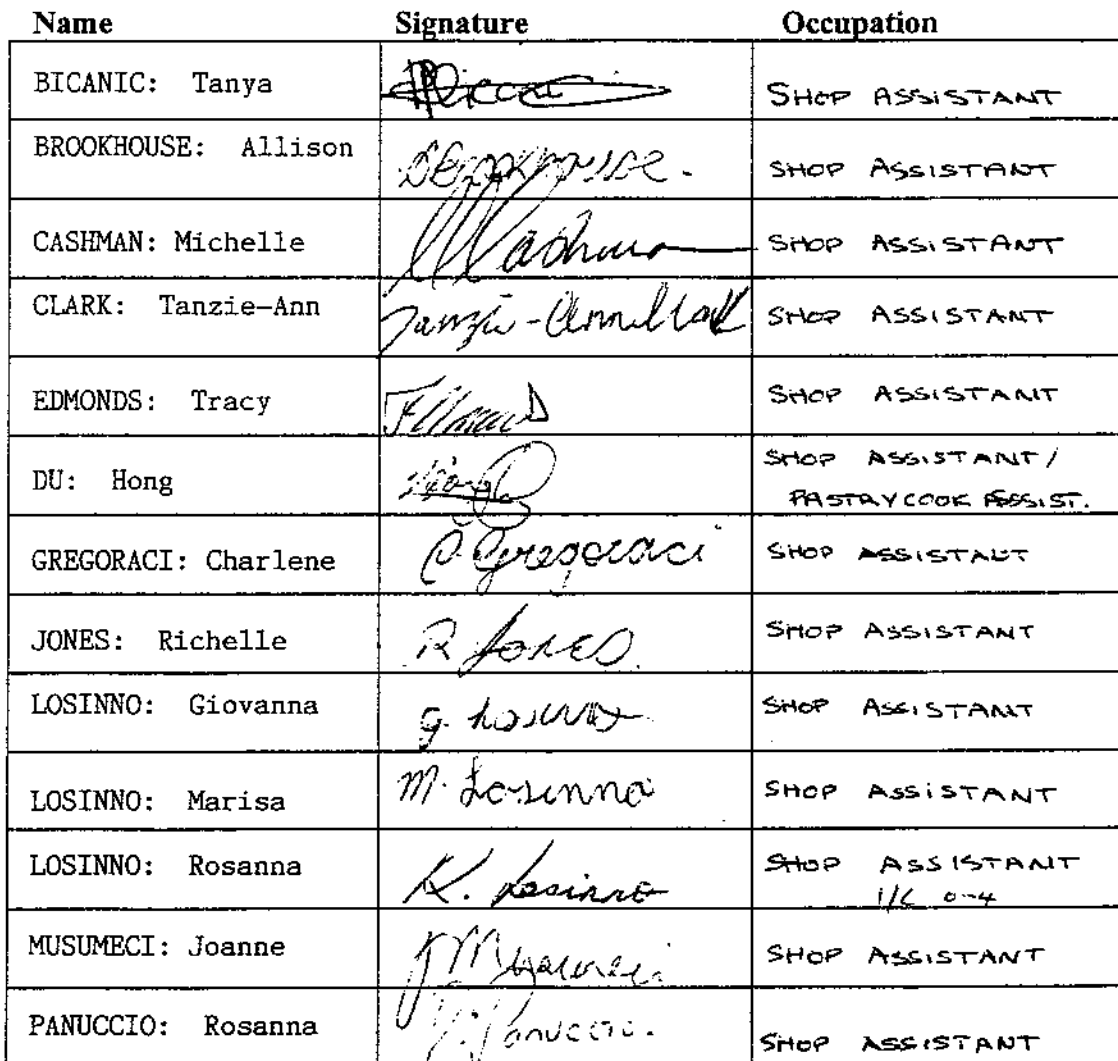 Name Signature Occupation
BICANIC: Tanya SHOP ASSISTANT
BROOKHOUSE: Allison SHOP ASSISTANT
CASHMAN: Michelle SHOP ASSISTANT
CLARK: Tanzie-Ann Tanzie-Ann Clark SHOP ASSISTANT
EDMONDS: Tracy SHOP ASSISTANT
DU: Hong SHOP ASSISTANT/
PASTRYCOOK ASSIST.
GREGORACI: Charlene C. Gregoraci SHOP ASSISTANT
JONES: Richelle R Jones SHOP ASSISTANT
LOSINNO: Giovanna G. Losinno SHOP ASSISTANT
LOSINNO: Marisa M. Losinno SHOP ASSISTANT
LOSINNO: Rosanna R. Losinno SHOP ASSISTANT
I/C 0-4
MUSUMECI: Joanne SHOP ASSISTANT
PANUCCIO: Rosanna Panuccio. SHOP ASSISTANT